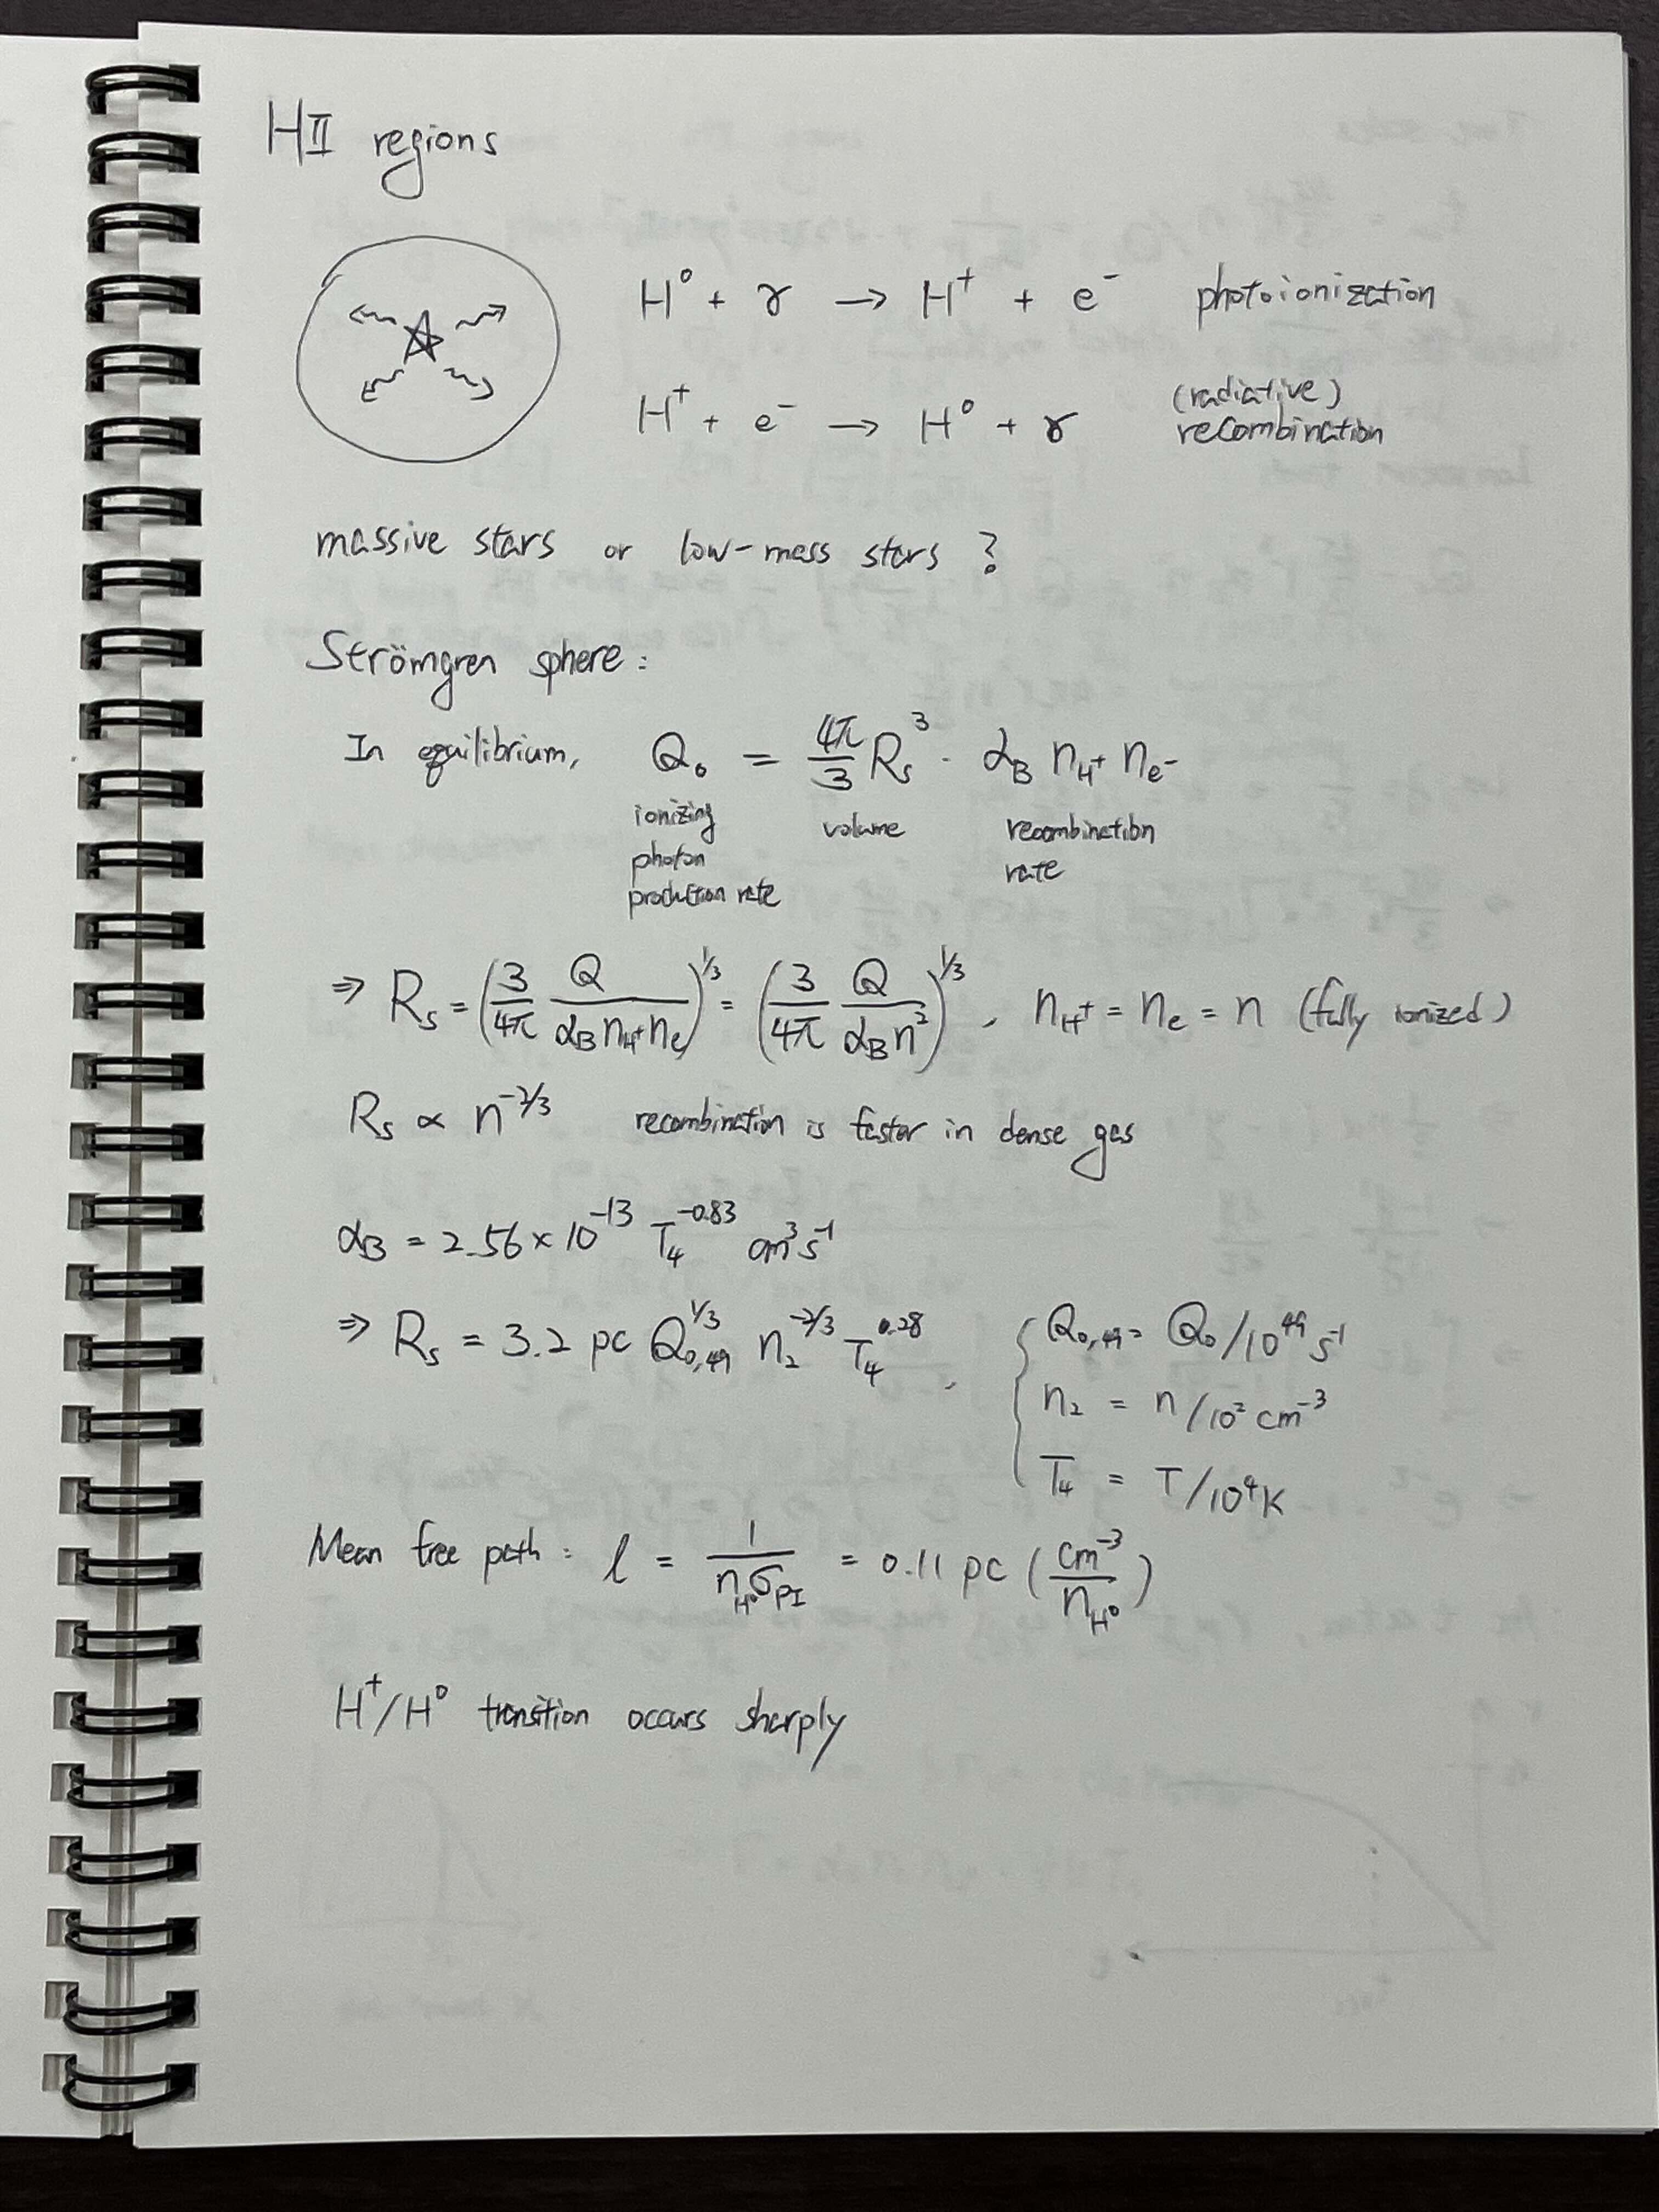 HII regions
H⁰ + γ → H⁺ + e⁻ photoionization
H⁺ + e⁻ → H⁰ + γ (radiative) recombination
massive stars or low-mass stars ?
Strömgren sphere :
In equilibrium, Q₀ = 4π/3 Rₛ³ · α_B n_H⁺ n_e⁻
ionizing photon production rate
volume
recombination rate
⇒ Rₛ = (3/4π Q/(α_B n_H⁺ n_e))^1/3 = (3/4π Q/(α_B n²))^1/3 , n_H⁺ = n_e = n (fully ionized)
Rₛ ∝ n^-2/3 recombination is faster in dense gas
α_B = 2.56 × 10⁻¹³ T₄^-0.83 cm³ s⁻¹
⇒ Rₛ = 3.2 pc Q₀,₄₉^1/3 n₂^-2/3 T₄^0.28 ,
{ Q₀,₄₉ = Q₀ / 10⁴⁹ s⁻¹
n₂ = n / 10² cm⁻³
T₄ = T / 10⁴ K
Mean free path : l = 1/(n_H⁰ σ_PI) = 0.11 pc (cm⁻³/n_H⁰)
H⁺/H⁰ transition occurs sharply